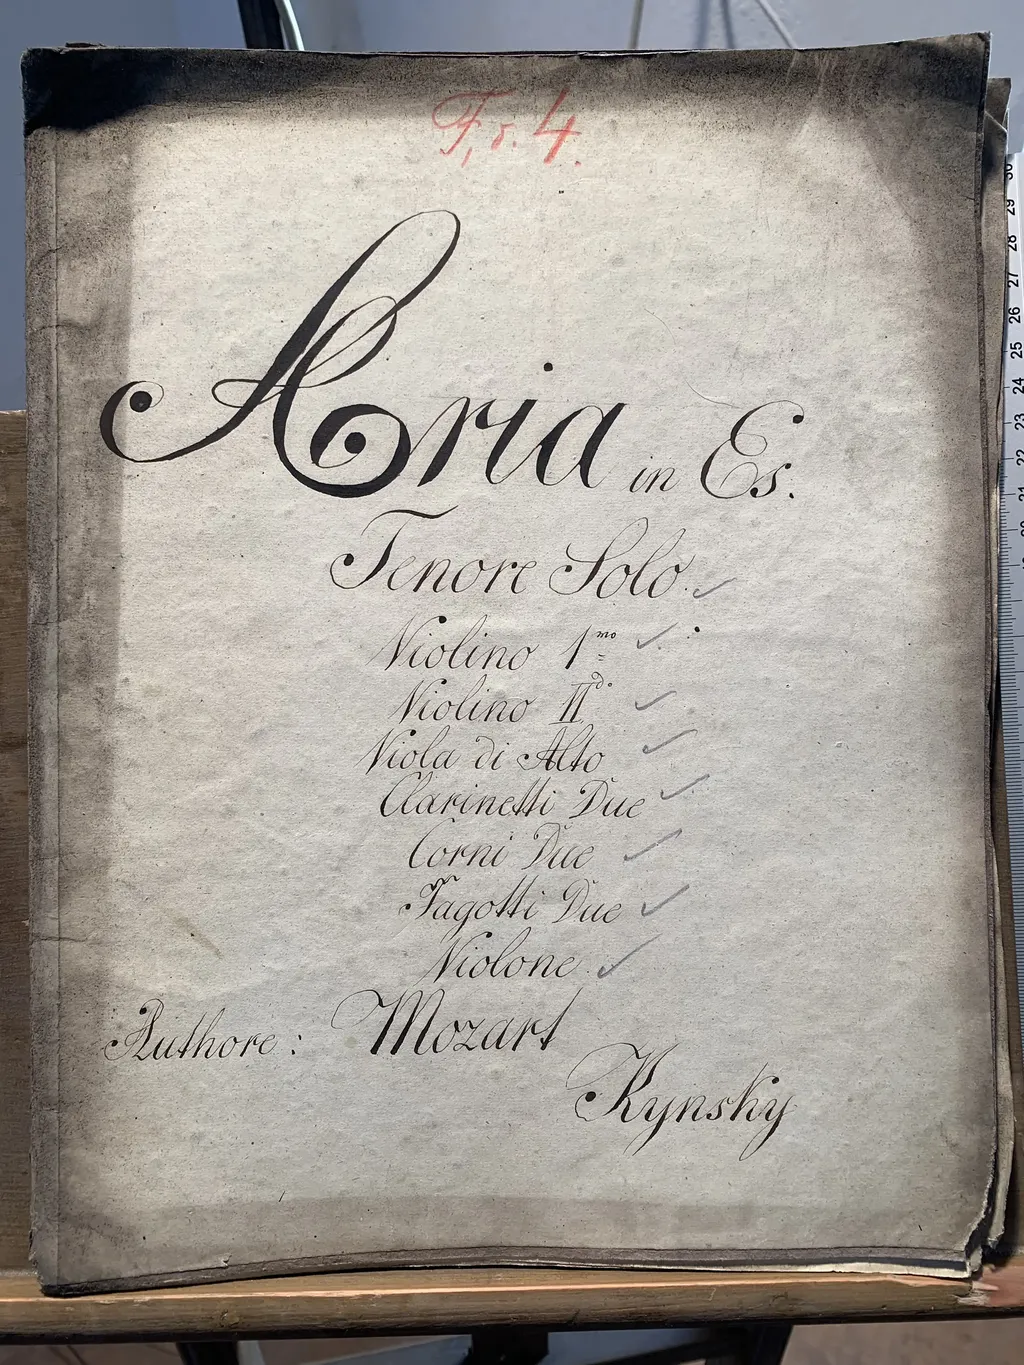 Fr. 4.
Aria in Es.
Tenore Solo.
Violino 1mo
Violino IId.
Viola di Alto
Clarinetti Due
Corni Due
Fagotti Due
Violone.
Authore: Mozart
Kynsky
30
29
28
27
26
25
24
23
22
21